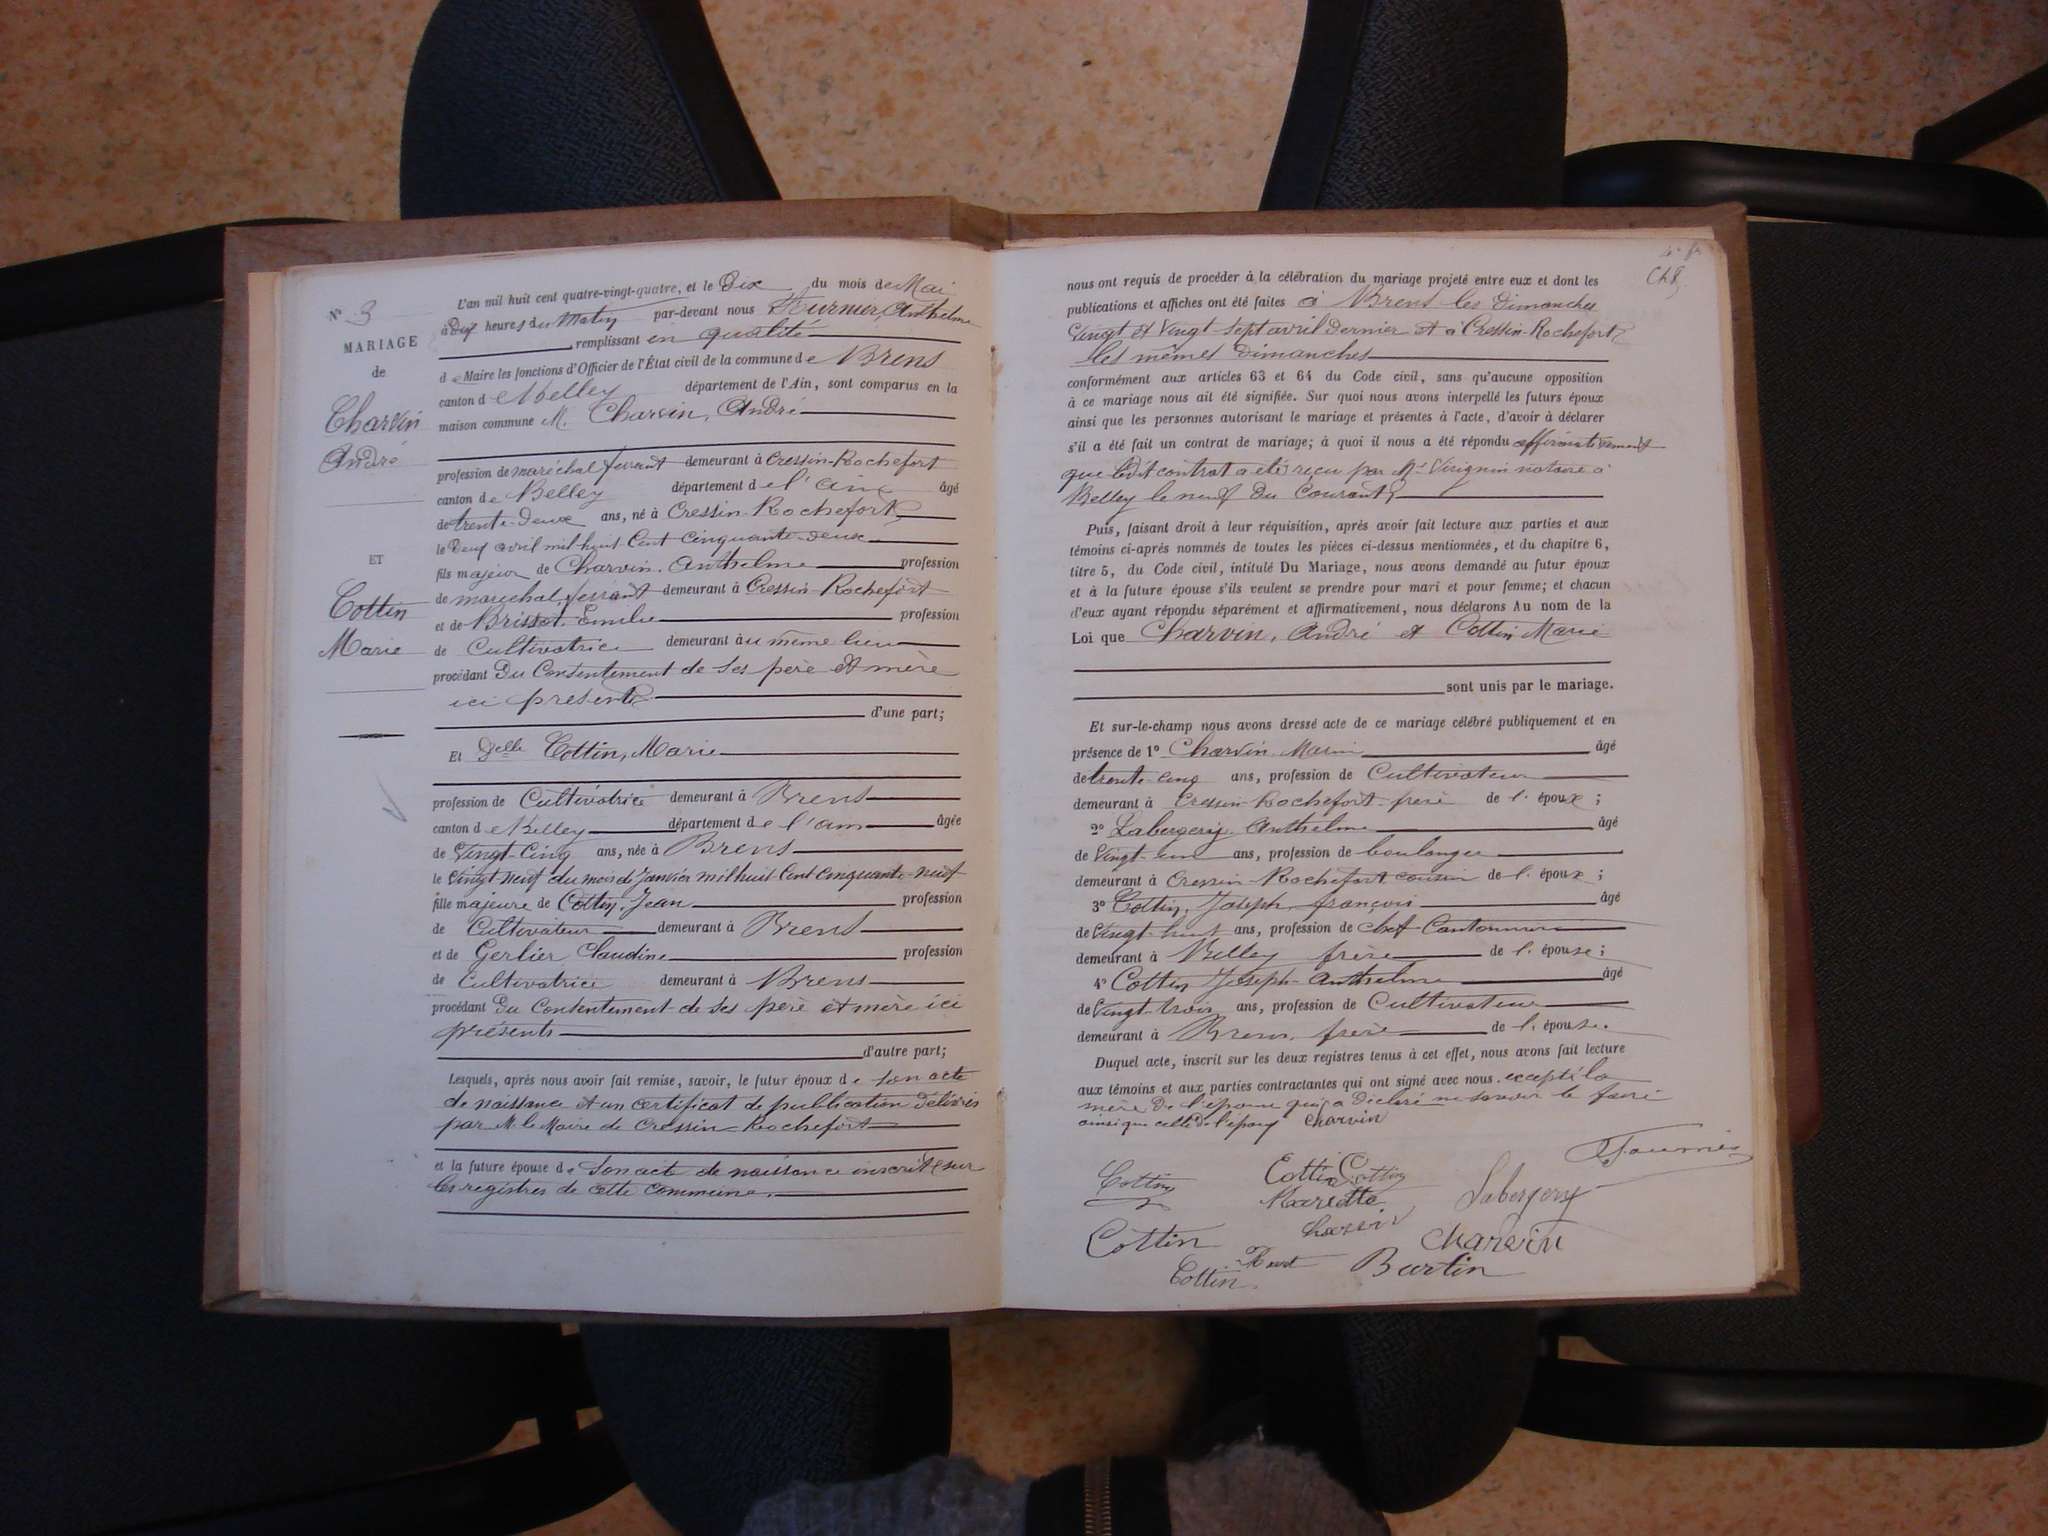 N° 3
MARIAGE
de
Charvin
André
ET
Cottin
Marie
L'an mil huit cent quatre-vingt-quatre, et le Dix du mois de Mai
à heures du Matin par-devant nous Fournier, Anthelme
remplissant en qualité
de Maire les fonctions d'Officier de l'État civil de la commune de Brens
canton de Belley département de l'Ain, sont comparus en la
maison commune M. Charvin, André
profession de maréchal ferrant demeurant à Cressin-Rochefort
canton de Belley département de l'ain âgé
de trente-deux ans, né à Cressin-Rochefort
le avril mil huit cent cinquante-deux
fils majeur de Charvin, Anthelme profession
de maréchal ferrant demeurant à Cressin Rochefort
et de Brisset, Emilie profession
de Cultivatrice demeurant au même lieu
procédant Du Consentement de ses père et mère
ici présents
d'une part;
Et Delle Cottin, Marie
profession de Cultivatrice demeurant à Brens
canton de Belley département de l'ain âgée
de Vingt-Cinq ans, née à Brens
le Vingt neuf du mois de Janvier mil huit Cent Cinquante-neuf
fille majeure de Cottin, Jean profession
de Cultivateur demeurant à Brens
et de Gerlier Claudine profession
de Cultivatrice demeurant à Brens
procédant Du Consentement de ses père et mère ici
présents
d'autre part;
Lesquels, après nous avoir fait remise, savoir, le futur époux de son acte
de naissance et un certificat de publication délivrés
par M. le Maire de Cressin-Rochefort
et la future épouse de Son acte de naissance inscrite sur
les registres de cette commune.
nous ont requis de procéder à la célébration du mariage projeté entre eux et dont les
publications et affiches ont été faites à Brens les Dimanches
Vingt et Vingt-sept avril Dernier et à Cressin-Rochefort
les mêmes Dimanches
conformément aux articles 63 et 64 du Code civil, sans qu'aucune opposition
à ce mariage nous ait été signifiée. Sur quoi nous avons interpellé les futurs époux
ainsi que les personnes autorisant le mariage et présentes à l'acte, d'avoir à déclarer
s'il a été fait un contrat de mariage; à quoi il nous a été répondu affirmativement
que ledit contrat a été reçu par Me notaire à
Belley le neuf Du Courant
Puis, faisant droit à leur réquisition, après avoir fait lecture aux parties et aux
témoins ci-après nommés de toutes les pièces ci-dessus mentionnées, et du chapitre 6,
titre 5, du Code civil, intitulé Du Mariage, nous avons demandé au futur époux
et à la future épouse s'ils veulent se prendre pour mari et pour femme; et chacun
d'eux ayant répondu séparément et affirmativement, nous déclarons Au nom de la
Loi que Charvin, André et Cottin Marie
sont unis par le mariage.
Et sur-le-champ nous avons dressé acte de ce mariage célébré publiquement et en
présence de 1° Charvin âgé
de trente-cinq ans, profession de Cultivateur
demeurant à Cressin-Rochefort frère de l'époux;
2° Labergerie Anthelme âgé
de Vingt-un ans, profession de boulanger
demeurant à Cressin-Rochefort cousin de l'époux;
3° Cottin, Joseph françois âgé
de Vingt-huit ans, profession de chef Cantonnier
demeurant à Belley frère de l'épouse;
4° Cottin Joseph-Anthelme âgé
de Vingt-trois ans, profession de Cultivateur
demeurant à Brens, frère de l'épouse.
Duquel acte, inscrit sur les deux registres tenus à cet effet, nous avons fait lecture
aux témoins et aux parties contractantes qui ont signé avec nous excepté la
mère De l'épouse qui a déclaré ne savoir le faire
ainsi que celle de l'époux Charvin
Fournier
Cottin Cottin Cottin
Mariette Labergery
Charvin
Cottin Charvin
Burtin
Cottin